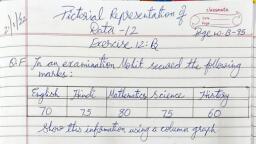 Pictorial Representation of
classmate
Data - 12
Pg. no. B-95
Exercise 12: B
Q.F. In an examination Mohit secured the following
marks:
English Hindi Mathematics Science History
70 75 80 75 60
Show this information using a column graph